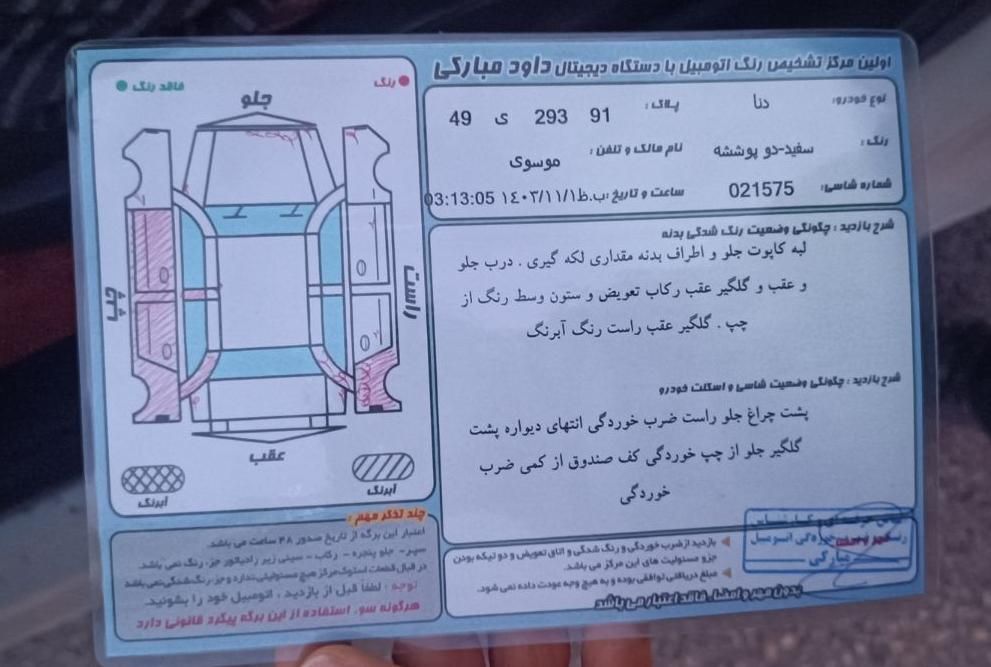 اولین مرکز تشخیص رنگ اتومبیل با دستگاه دیجیتال داود مبارکی
نوع خودرو: دنا پلاک: 91 293 ی 49
رنگ: سفید-دو پوششه نام مالک و تلفن: موسوی
شماره شاسی: 021575 ساعت و تاریخ: ب.ظ ۱۴۰۳/۱۱/۱ 03:13:05
شرح بازدید: چگونگی وضعیت رنگ شدگی بدنه
لبه کاپوت جلو و اطراف بدنه مقداری لکه گیری . درب جلو
و عقب و گلگیر عقب رکاب تعویض و ستون وسط رنگ از
چپ . گلگیر عقب راست رنگ آبرنگ
شرح بازدید: چگونگی وضعیت شاسی و اسکلت خودرو
پشت چراغ جلو راست ضرب خوردگی انتهای دیواره پشت
گلگیر جلو از چپ خوردگی کف صندوق از کمی ضرب
خوردگی
بازدید از ضرب خوردگی و رنگ شدگی و اتاق تعویض و دو تیکه بودن
جزو مسئولیت های این مرکز می باشد.
مبلغ دریافتی توافقی بوده و به هیچ وجه عودت داده نمی شود.
بدون مهر و امضاء فاقد اعتبار می باشد
خوردگی اتومبیل
مبارکی
رنگ
فاقد رنگ
جلو
چپ
راست
عقب
آبرنگ
آبرنگ
چند تذکر مهم:
اعتبار این برگه از تاریخ صدور ۴۸ ساعت می باشد.
سپر - جلو پنجره - رکاب - سینی زیر رادیاتور جزء رنگ نمی باشد.
در قبال قطعات استوک مرکز هیچ مسئولیتی ندارد و جزء رنگ شدگی نمی باشد
توجه: لطفا قبل از بازدید، اتومبیل خود را بشوئید.
هرگونه سوء استفاده از این برگه پیگرد قانونی دارد